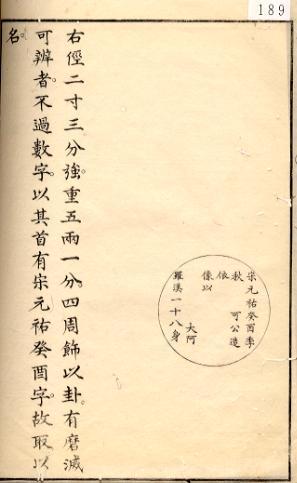 189
宋元祐癸酉季
秋 可公造
依 大阿
像以
羅漢一十八身
右徑二寸三分強。重五兩一分。四周飾以卦。有磨滅
可辨者。不過數字。以其首有宋元祐癸酉字。故取以
名。